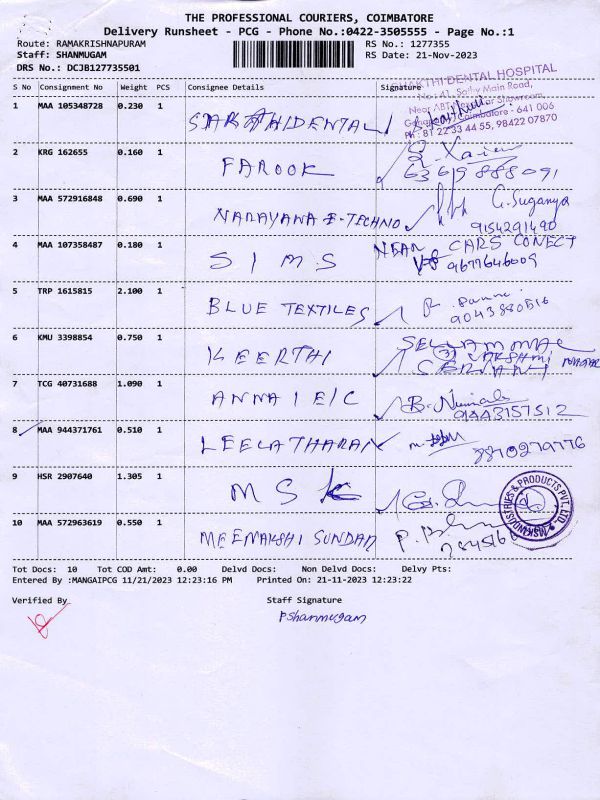 THE PROFESSIONAL COURIERS, COIMBATORE
Delivery Runsheet - PCG - Phone No.:0422-3505555 - Page No.:1
Route: RAMAKRISHNAPURAM RS No.: 1277355
Staff: SHANMUGAM RS Date: 21-Nov-2023
DRS No.: DCJB127735501
SHAKTHI DENTAL HOSPITAL
No: 41, Sathy Main Road,
Near ABT Showroom,
Coimbatore - 641 006
Ph : 81 22 33 44 55, 98422 07870
S No Consignment No Weight PCS Consignee Details Signature
1 MAA 105348728 0.230 1
2 KRG 162655 0.160 1 FAROOK S. Xavier
6369888091
3 MAA 572916848 0.690 1 NARAYANA E-TECHNO G. Suganya
9154291490
4 MAA 107358487 0.180 1 SIMS NEAR CARS CONECT
9677646009
5 TRP 1615815 2.100 1 BLUE TEXTILES
9043880516
6 KMU 3398854 0.750 1 KEERTHI SELLAMMAL
7 TCG 40731688 1.090 1 ANNAI E/C
9443157512
8 MAA 944371761 0.510 1 LEELATHARAN 8870279776
9 HSR 2907640 1.305 1 MSK
MSK INDUSTRIES & PRODUCTS PVT. LTD.
10 MAA 572963619 0.550 1 MEENAKSHI SUNDAR
Tot Docs: 10 Tot COD Amt: 0.00 Delvd Docs: Non Delvd Docs: Delvy Pts:
Entered By :MANGAIPCG 11/21/2023 12:23:16 PM Printed On: 21-11-2023 12:23:22
Verified By Staff Signature
P Shanmugam